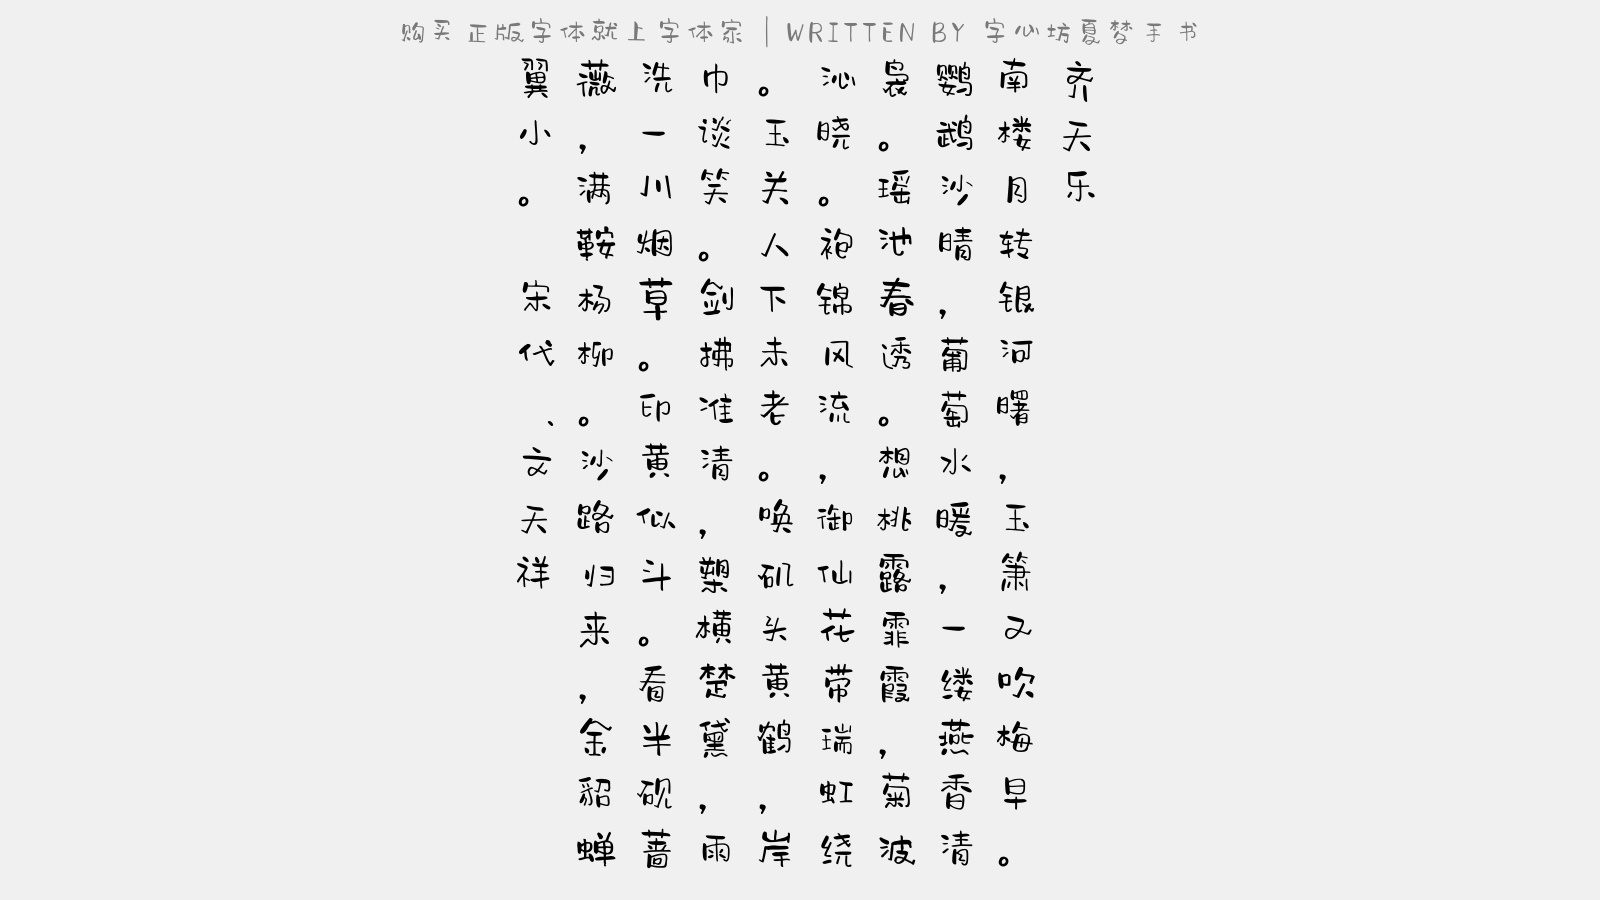 购买正版字体就上字体家 | WRITTEN BY 字心坊夏梦手书
齐天乐
南楼月转银河曙，玉箫又吹梅早。
鹦鹉沙晴，葡萄水暖，一缕燕香清
袅。瑶池春透。想桃露霏霞，菊波
沁晓。袍锦风流，御仙花带瑞虹绕
。玉关人下未老。唤矶头黄鹤，岸
巾谈笑。剑拂淮清，槊横楚黛，雨
洗一川烟草。印黄似斗。看半砚蔷
薇，满鞍杨柳。沙路归来，金貂蝉
翼小。 宋代、文天祥